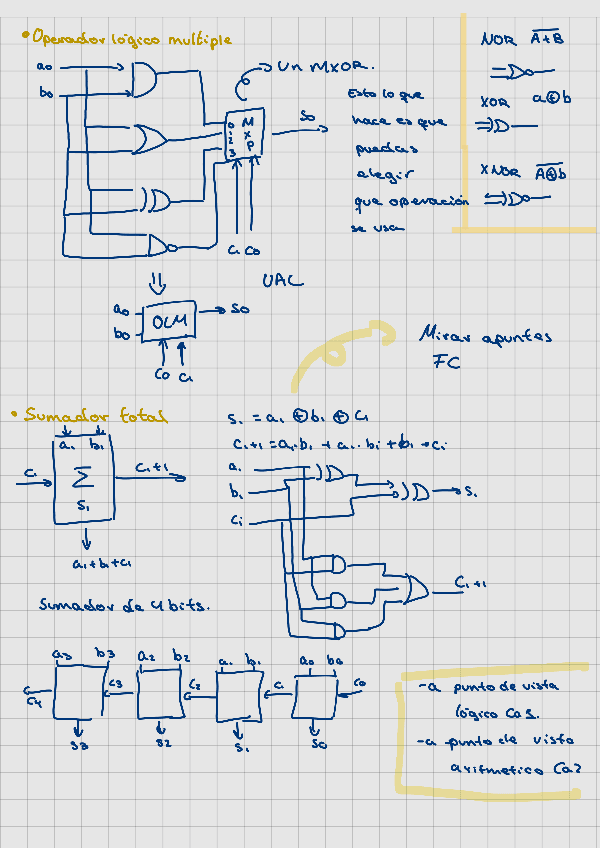 • Operador lógico multiple
a0
b0
Un MXOR.
0
1
2
3
M
X
P
S0
C1 C0
Esto lo que
hace es que
puedas
elegir
que operación
se usa
NOR A+B
XOR a⊕b
XNOR A⊕b
UAC
a0
b0
OLM
S0
C0 C1
Mirar apuntes
FC
• Sumador total
ai bi
Ci
Σ
Ci+1
Si
ai+bi+ci
Si = ai ⊕ bi ⊕ Ci
Ci+1 = ai·bi + ai·bi + bi + ci
ai
bi
ci
Si
Ci+1
Sumador de 4 bits.
a3 b3 a2 b2 a1 b1 a0 b0
C4 C3 C2 C1 C0
S3 S2 S1 S0
-a punto de vista
lógico Ca1.
-a punto de vista
aritmetico Ca2